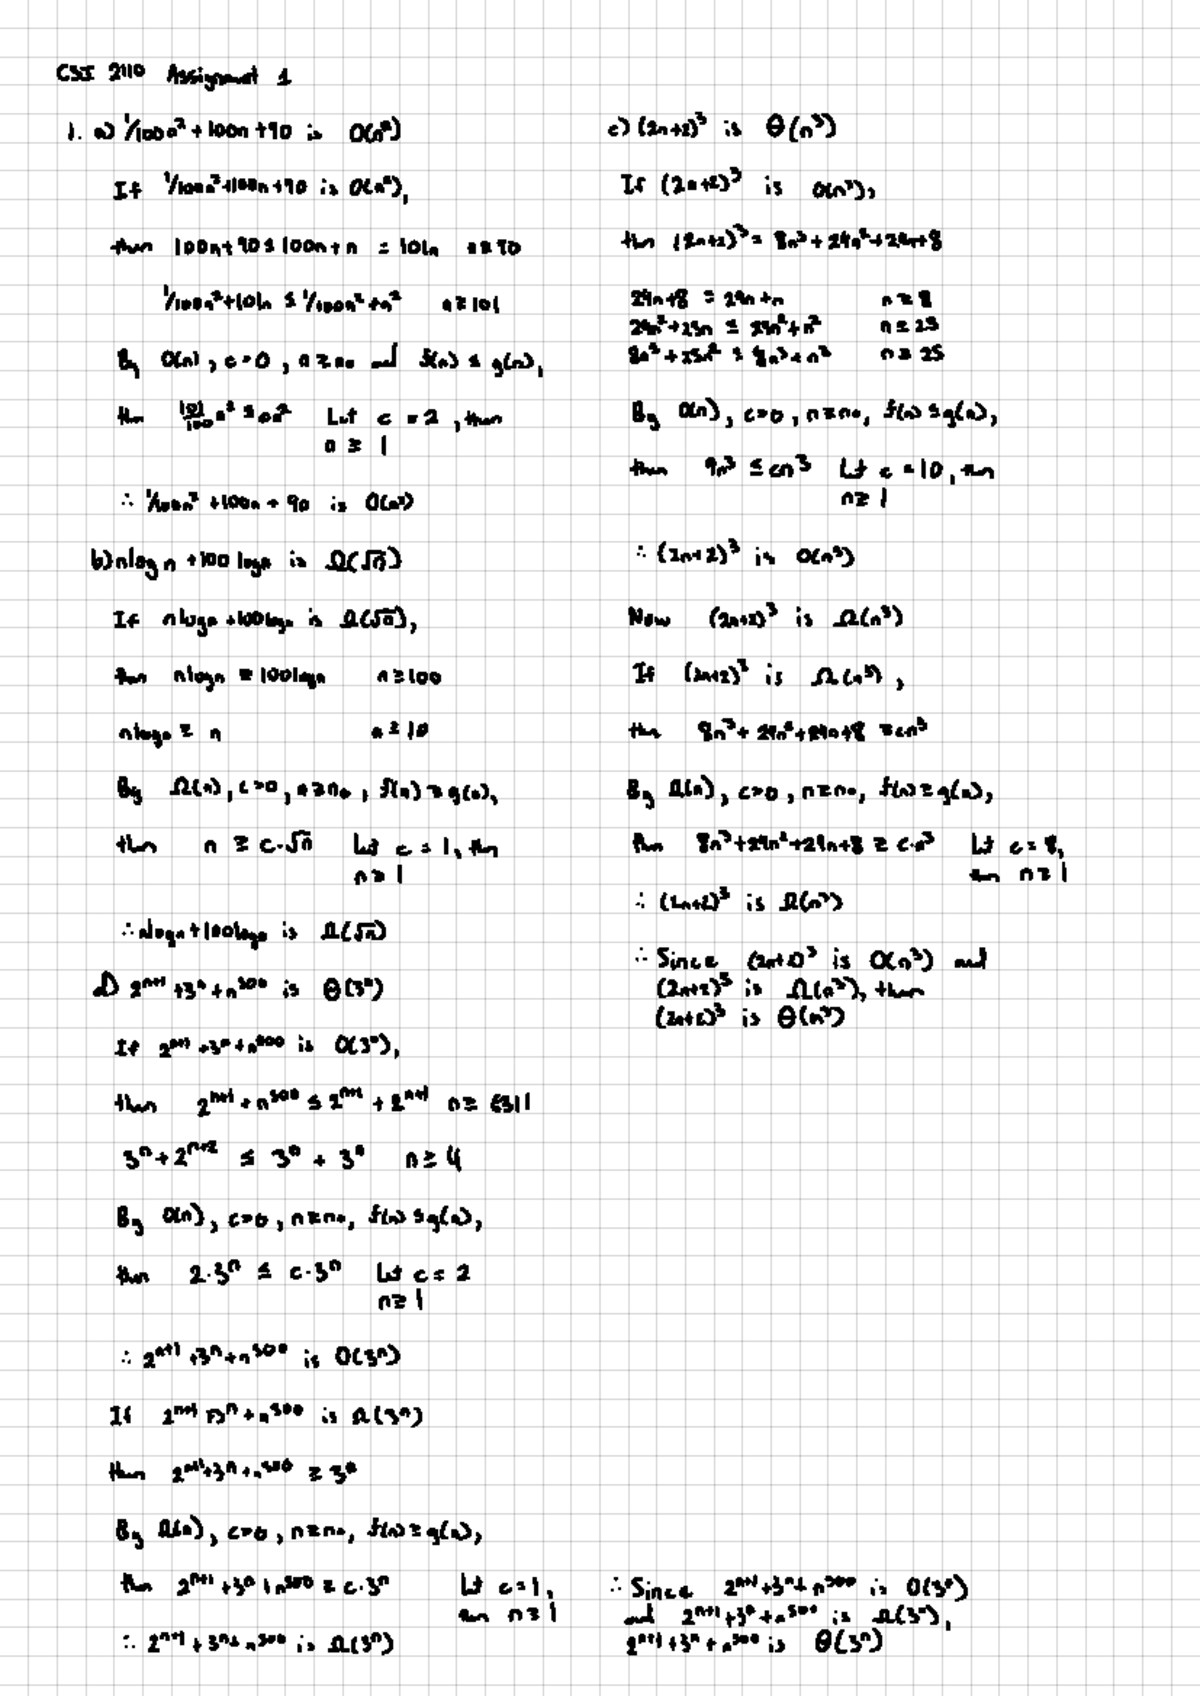 CSI 2110 Assignment 1
1. a) 1/100n² + 100n + 90 is O(n²)
If 1/100n² + 100n + 90 is O(n²),
then 100n + 90 ≤ 100n + n = 101n n ≥ 90
1/100n² + 101n ≤ 1/100n² + n² n ≥ 101
By O(n), c > 0, n ≥ n₀ and f(n) ≤ g(n),
then 101/100 n² ≤ cn² Let c = 2, then
n ≥ 1
∴ 1/100n² + 100n + 90 is O(n²)
b) nlogn + 100 logn is Ω(√n)
If nlogn + 100logn is Ω(√n),
then nlogn ≥ 100logn n ≥ 100
nlogn ≥ n n ≥ 10
By Ω(n), c > 0, n ≥ n₀, f(n) ≥ g(n),
then n ≥ c·√n Let c = 1, then
n ≥ 1
∴ nlogn + 100logn is Ω(√n)
d) 2ⁿ⁺¹ + 3ⁿ + n⁵⁰⁰ is Θ(3ⁿ)
If 2ⁿ⁺¹ + 3ⁿ + n⁵⁰⁰ is O(3ⁿ),
then 2ⁿ⁺¹ + n⁵⁰⁰ ≤ 2ⁿ⁺¹ + 2ⁿ⁺¹ n ≥ 6311
3ⁿ + 2ⁿ⁺² ≤ 3ⁿ + 3ⁿ n ≥ 4
By O(n), c > 0, n ≥ n₀, f(n) ≤ g(n),
then 2·3ⁿ ≤ c·3ⁿ Let c = 2
n ≥ 1
∴ 2ⁿ⁺¹ + 3ⁿ + n⁵⁰⁰ is O(3ⁿ)
If 2ⁿ⁺¹ + 3ⁿ + n⁵⁰⁰ is Ω(3ⁿ)
then 2ⁿ⁺¹ + 3ⁿ + n⁵⁰⁰ ≥ 3ⁿ
By Ω(n), c > 0, n ≥ n₀, f(n) ≥ g(n),
then 2ⁿ⁺¹ + 3ⁿ + n⁵⁰⁰ ≥ c·3ⁿ Let c = 1,
then n ≥ 1
∴ 2ⁿ⁺¹ + 3ⁿ + n⁵⁰⁰ is Ω(3ⁿ)
c) (2n+2)³ is Θ(n³)
If (2n+2)³ is O(n³),
then (2n+2)³ = 8n³ + 24n² + 24n + 8
24n + 8 ≤ 24n + n n ≥ 8
24n² + 25n ≤ 24n² + n² n ≥ 25
8n³ + 25n² ≤ 8n³ + n³ n ≥ 25
By O(n), c > 0, n ≥ n₀, f(n) ≤ g(n),
then 9n³ ≤ cn³ Let c = 10, then
n ≥ 1
∴ (2n+2)³ is O(n³)
Now (2n+2)³ is Ω(n³)
If (2n+2)³ is Ω(n³),
then 8n³ + 24n² + 24n + 8 ≥ cn³
By Ω(n), c > 0, n ≥ n₀, f(n) ≥ g(n),
then 8n³ + 24n² + 24n + 8 ≥ c·n³ Let c = 8,
then n ≥ 1
∴ (2n+2)³ is Ω(n³)
∴ Since (2n+2)³ is O(n³) and
(2n+2)³ is Ω(n³), then
(2n+2)³ is Θ(n³)
∴ Since 2ⁿ⁺¹ + 3ⁿ + n⁵⁰⁰ is O(3ⁿ)
and 2ⁿ⁺¹ + 3ⁿ + n⁵⁰⁰ is Ω(3ⁿ),
2ⁿ⁺¹ + 3ⁿ + n⁵⁰⁰ is Θ(3ⁿ)